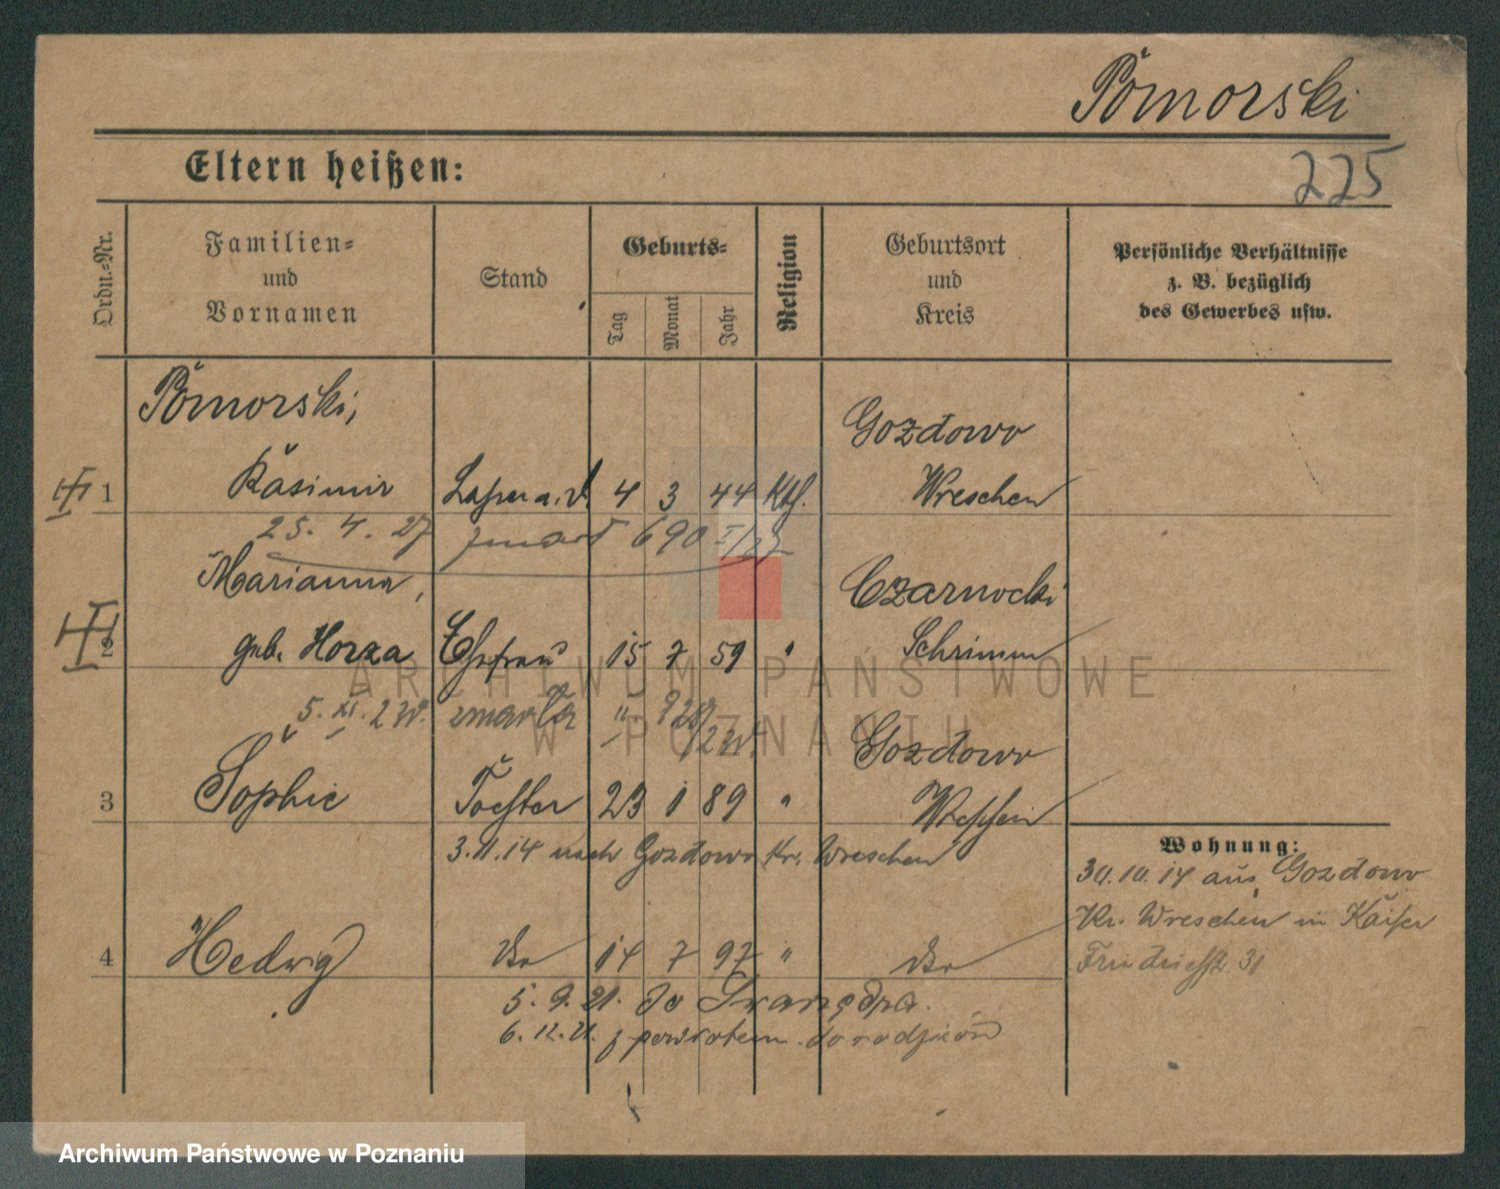 Pomorski
225
Eltern heißen:
Ordn.-Nr.
Familien-
und
Vornamen
Stand
Geburts-
Tag
Monat
Jahr
Religion
Geburtsort
und
Kreis
Persönliche Verhältnisse
z. B. bezüglich
des Gewerbes usw.
Pomorski,
Gozdowo
1 Kasimir 4 3 44 Kth. Wreschen
25. 4. 27 zmarł 690
Marianna, Czarnocki
2 geb. Horza Ehefrau 15 7 59 " Schrimm
5. XI. 2 zmarła
Gozdowo
3 Sophie Tochter 23 1 89 " Wreschen
3.11.14 nach Gozdowo Kr. Wreschen
Wohnung:
30.10.14 aus Gozdowo
Kr. Wreschen in Kaiser
Friedrichstr. 31
4 Hedwig 14 7 97 "
5. 9. 21. do
6. 12. 21. z powrotem do rodziców
ARCHIWUM PAŃSTWOWE
W POZNANIU
Archiwum Państwowe w Poznaniu